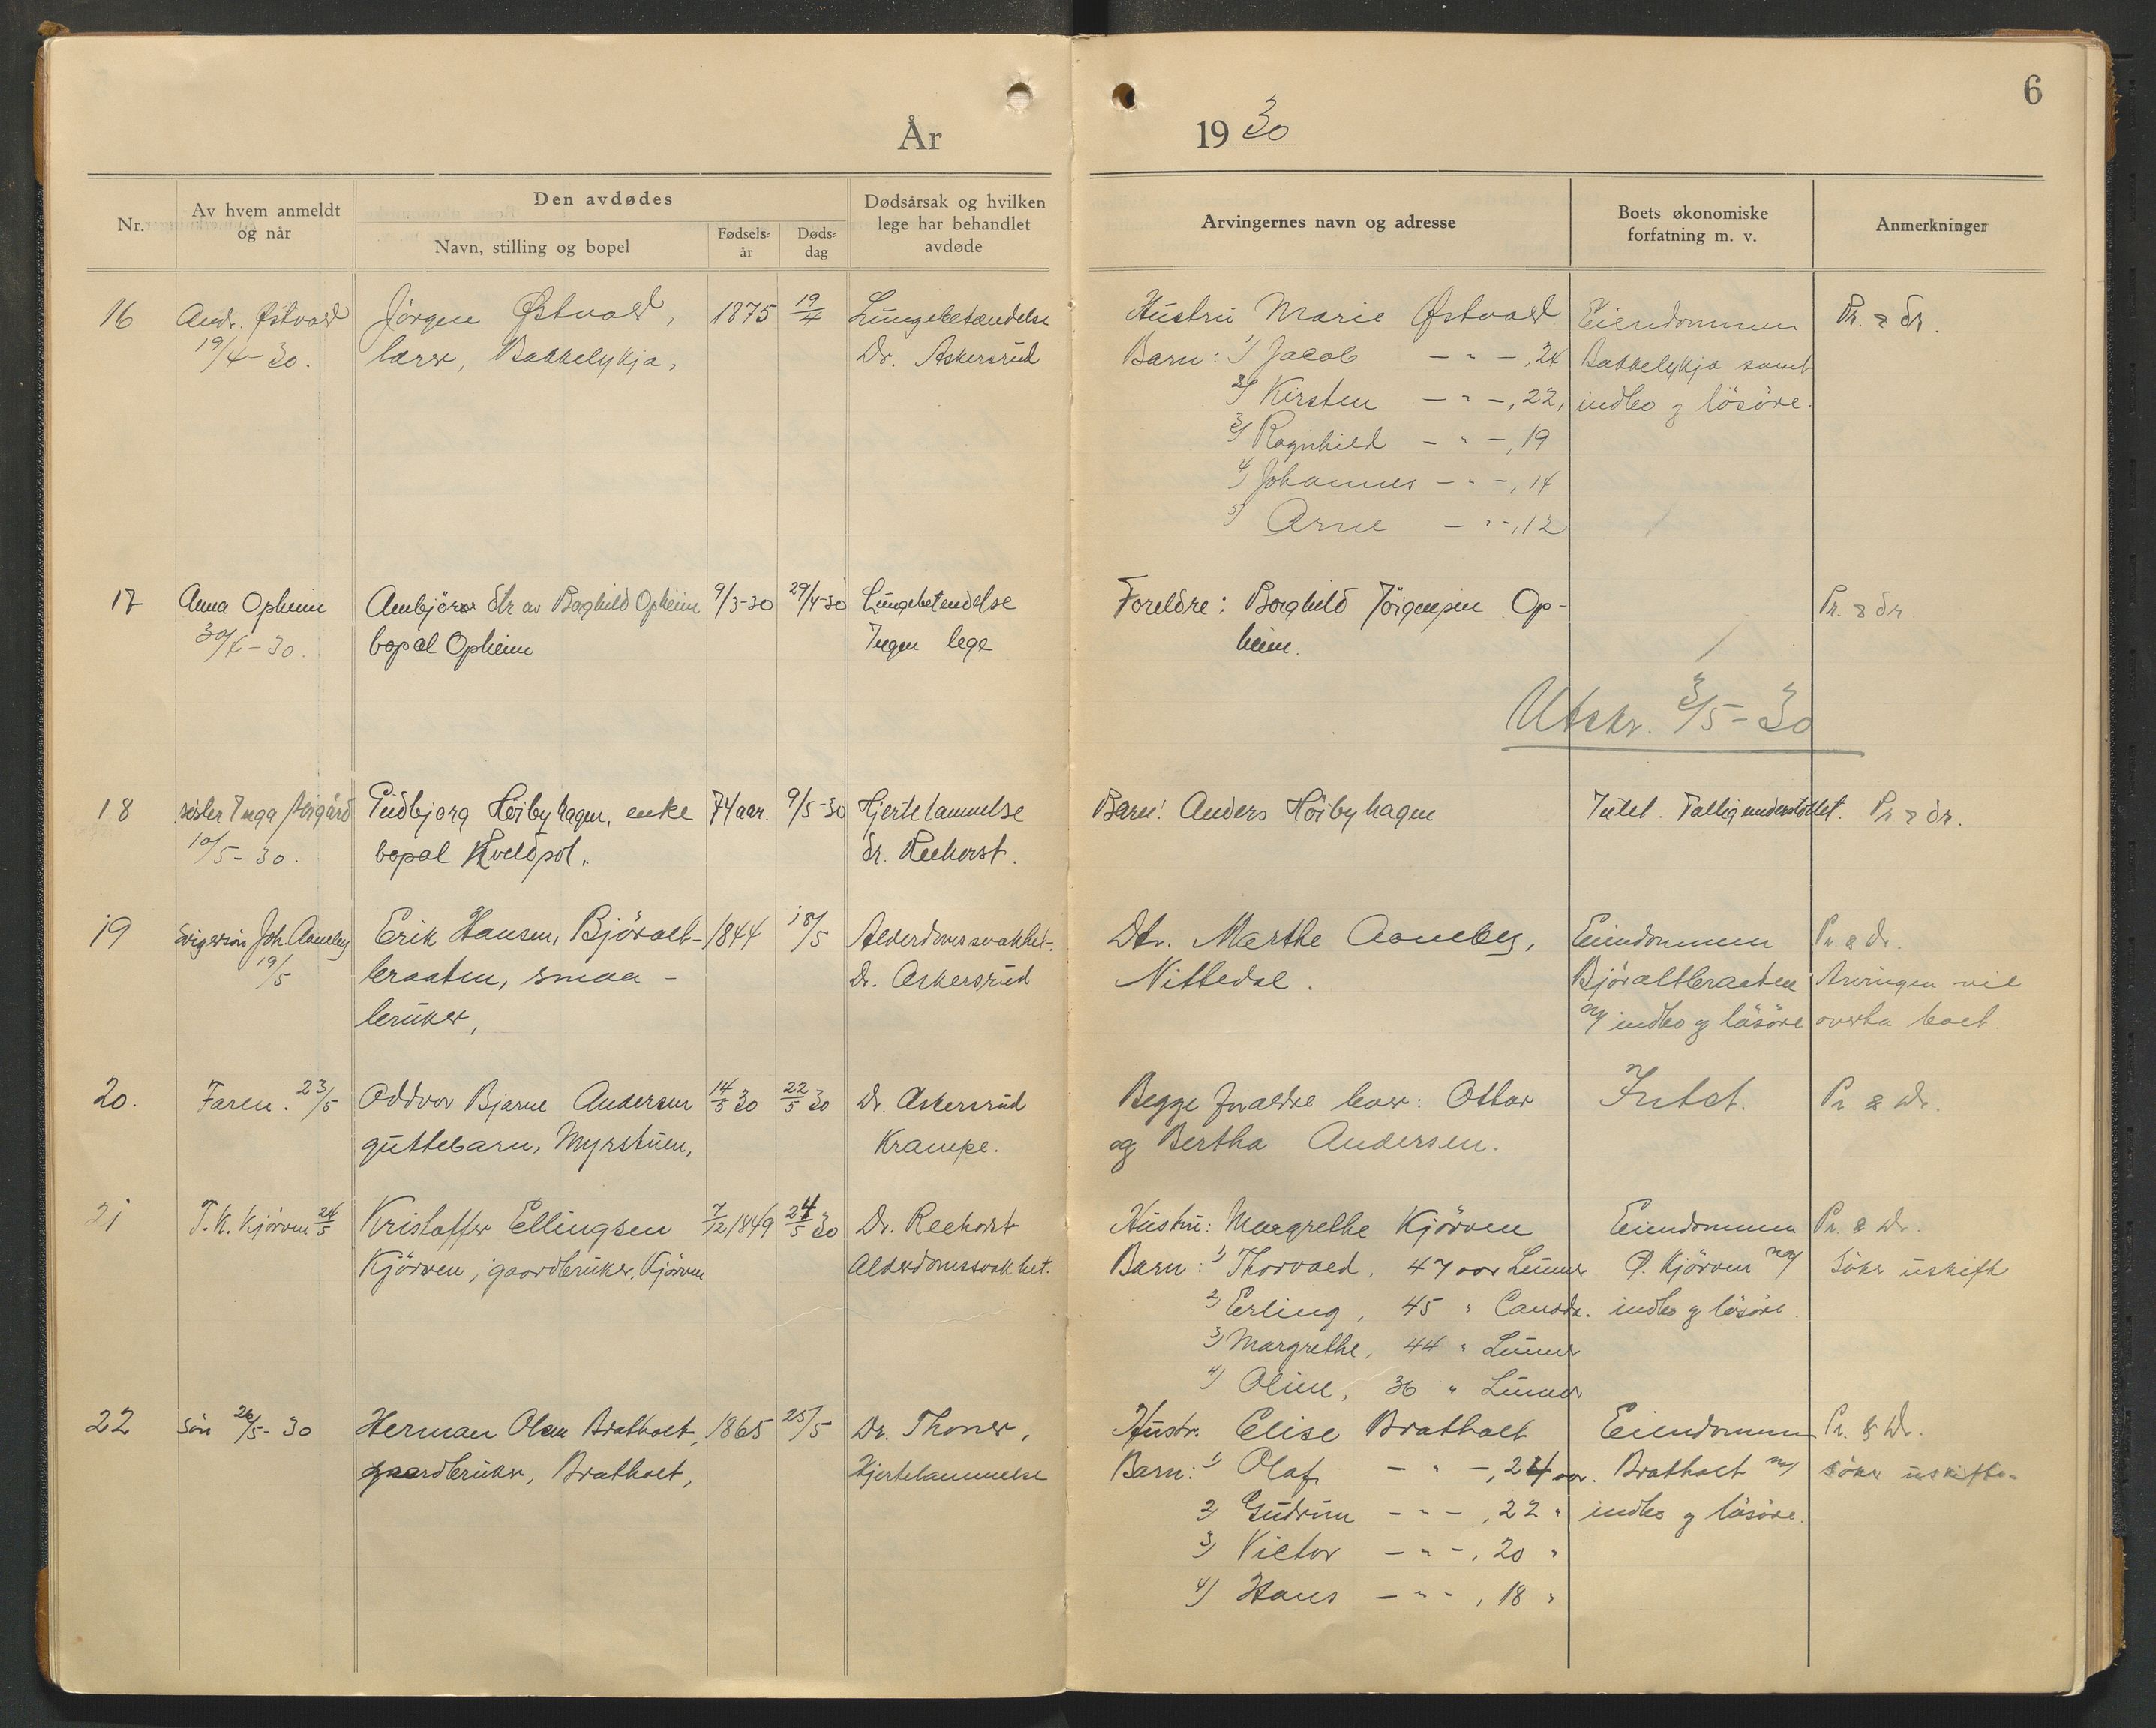 6
År 1930
Nr.
Av hvem anmeldt
og når
Den avdødes
Navn, stilling og bopel
Fødsels-
år
Døds-
dag
Dødsårsak og hvilken
lege har behandlet
avdøde
Arvingernes navn og adresse
Boets økonomiske
forfatning m. v.
Anmerkninger
16 Andr. Østvold Jörgen Østvold, 1875 19/4 Lungebetændelse Hustru Marie Østvold Eiendommen Pr. & dr.
19/4-30. lærer, Bakkelykja, Dr. Askersrud Barn: 1) Jacob — " —, 24 Bakkelykja samt
2) Kirsten — " —, 22, indbo og lösöre.
3) Ragnhild — " —, 19
4) Johannes — " —, 14
5) Arne — " —, 12
17 Anna Opheim Ambjör dtr av Borghild Opheim 9/3-30 29/4-30 Lungebetendelse Foreldre: Borghild Jörgensen Op- Pr. & dr.
30/4-30. bopel Opheim Ingen lege heim.
Utskr. 3/5-30
18 søster Inga 74 aar. 9/5-30 Hjertelammelse Barn: Anders Höibyhagen Intet. Fattigunderstöttet. Pr & dr.
10/5-30. Gudbjørg Höibyhagen, enke
bopel Kveldsol. dr. Reehorst.
19 Svigersön Joh. Aaneby Erik Hansen, Björalt- 1844 18/5 Alderdomssvakhet. Dtr. Marthe Aaneby, Eiendommen Pr. & dr.
19/5 braaten, smaa- Dr. Askersrud Nittedal. Björaltbraaten Arvingen vil
bruker, og indbo og lösöre overta boet.
20. Faren. 23/5 Oddvar Bjarne Andersen 14/5 30 22/5 30 Dr. Askersrud Begge foraldre lever: Ottar Intet. Pr & Dr.
guttebarn, Myrstuen, Krampe. og Bertha Andersen.
21 T. K. Kjörven 24/5 Kristoffer Ellingsen 7/12 1849 24/5 30 Dr. Reehorst Hustru: Margrethe Kjörven Eiendommen Pr. & Dr.
Kjörven, gaardbruker, Kjörven Alderdomssvakhet. Barn: 1) Thorvald, 47 aar Lunner Ø. Kjörven og söker uskifte
2) Erling, 45 " Canada. indbo og lösöre.
3) Margrethe, 44 " Lunner
4) Oline, 36 " Lunner
22 Sön 26/5-30 Herman Olsen Bratholt, 1865 25/5 Dr. Thoner, Hustr. Elise Bratholt Eiendommen Pr. & Dr.
gaardbruker, Bratholt, Hjertelammelse Barn: 1) Olaf — " —, 24 aar. Bratholt og söker uskifte.
2) Gudrun — " —, 22 " indbo og lösöre.
3) Victor — " —, 20 "
4) Hans — " —, 18 "